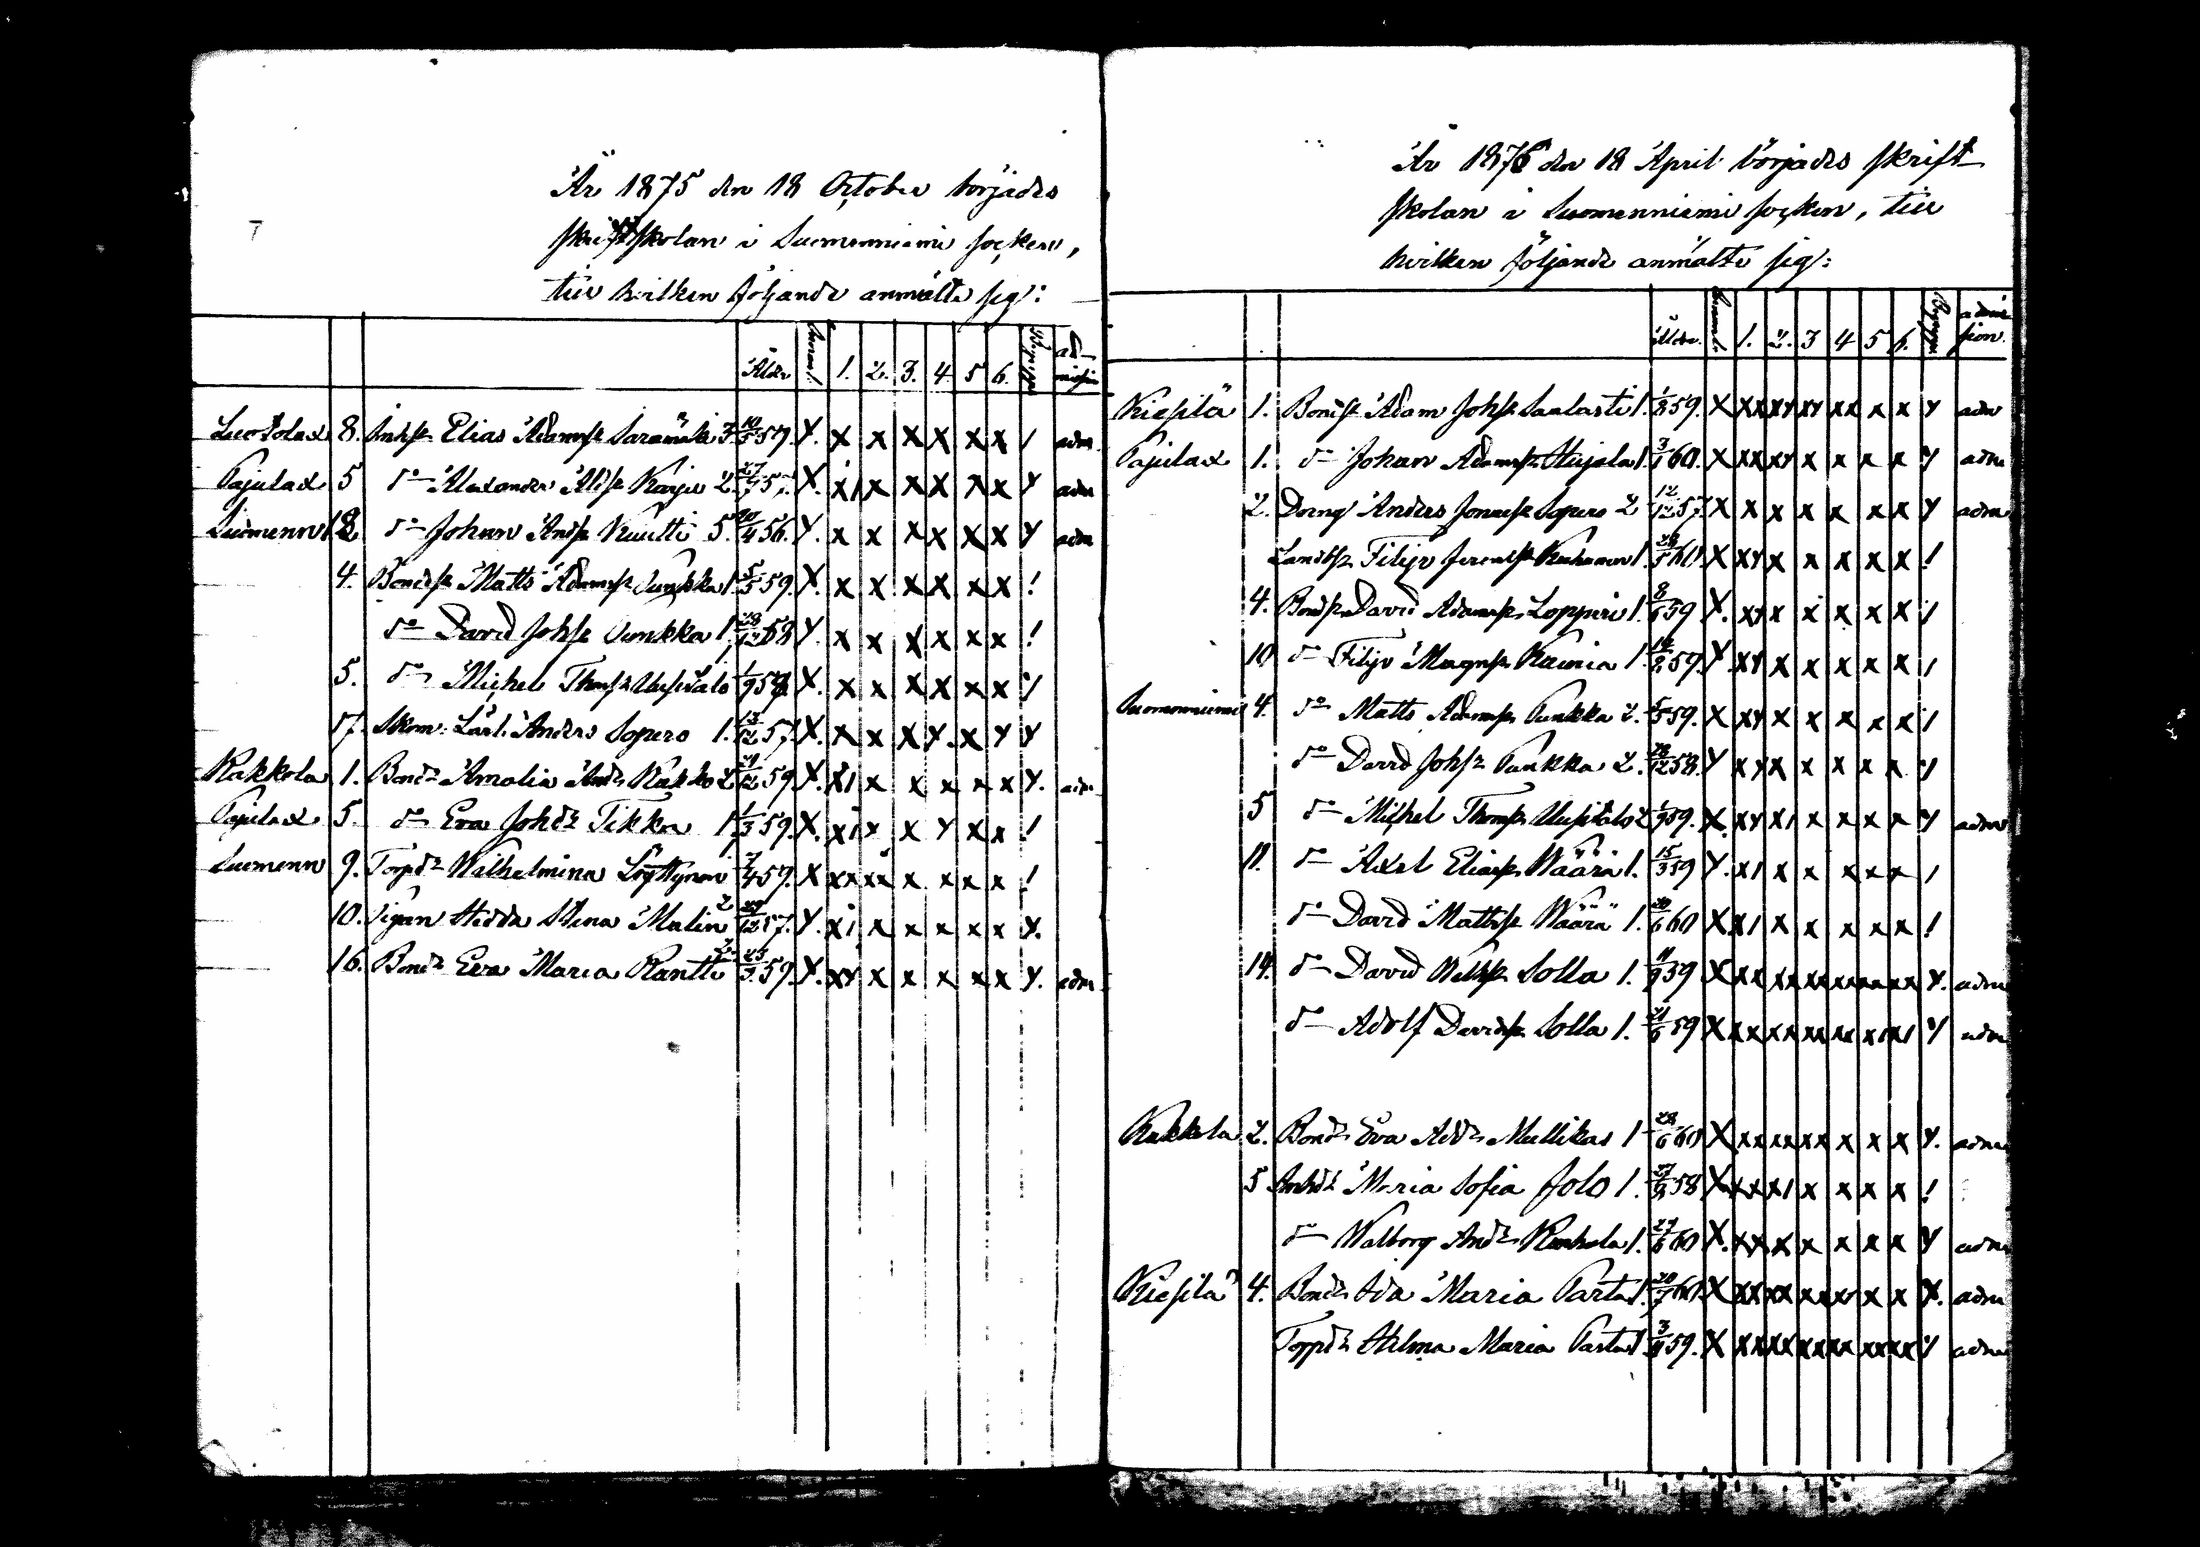 7
År 1875 den 18 October börjades
skriftskolan i Suomenniemi socken,
till hvilken följande anmälte sig:
Ålder 1. 2. 3. 4. 5 6. ad-
Luotolax 8. Inhsn Elias Adamsn Saramäki 3. 10/5 57. X. X X X X X X 1 adm
Pajulax 5 do Alexander Aldsn Karju 2. 27/7 57. X. X1 X X X X X Y adm
Suomenn 8. do Johan Andsn Kuutti 5. 20/4 56. Y. X X X X X X Y adm
4. Bondsn Matts Adamsn Punkka 1. 5/5 59. X. X X X X X X !
do David Johsn Punkka 1. 28/12 58 Y. X X X X X X !
5. do Michel Thomsn Uusitalo 1/9 58 X. X X X X X X Y
17. Skom: Lärl. Anders Sopero 1. 13/12 57. X. X X X Y. X Y Y
Kakkola 1. Bondr Amalia Andr Kakko 2. 29/12 59. X. X1 X X X X X Y. adm
Pajulax 5. do Eva Johdr Tikka 1. 1/3 59. X. X1 X X Y X X !
Suomenn 9. Torpdr Wilhelmina Löyttynen 7/4 59. X XX XX X X X X !
10. Pigan Hedda Stina Malin 2 29/12 57. Y. X1 X X X X X Y.
16. Bondr Eva Maria Rantti 2. 23/3 59. X. XY X X X X X Y. adm
År 1876 den 18 April börjades skrift
skolan i Suomenniemi socken, till
hvilken följande anmälte sig:
Ålder. 1. 2. 3 4 5 6. admis
sion.
Kiesilä 1. Bondsn Adam Johsn Saalasti 1. 1/8 59. X XX XY XY XX X X Y adm
Pajulax 1. do Johan Adamsn Hujala 1. 3/1 60. X XX XY X X X X Y adm
2. Dreng Anders Jonaesn Sopero 2 12/12 57. X X X X X X X Y adm
Landtsn Filip Jeremsn Kuhanen 1. 28/5 60 X XY X X X X X !
4. Bondsn David Adamsn Loppuri 1. 8/6 59 Y. XY X X X X X 1
10 do Filip Magnsn Kauria 1. 12/2 59. Y. XY X X X X X 1
Suomenniemi 4. do Matts Adamsn Punkka 2. 5/5 59. X XY X X X X X 1
do David Johsn Punkka 2. 28/12 58. Y XY X X X X X Y
5 do Michel Thomsn Uusitalo 2 1/9 59. X. XY X1 X X X X Y adm
11. do Axel Eliassn Väärä 1. 15/3 59 Y. X1 X X X X X 1
do David Mattssn Väärä 1. 20/6 60 X X1 X X X X X !
14. do David Wilhsn Solla 1. 9/9 59 X XX XX XX XX XX XX Y. adm
do Adolf Davidsn Solla 1. 21/6 59 X XX XX XX XX X1 X1 Y adm
Kakkola 2. Bondr Eva Addr Mullikas 1 28/6 60 X XX XX XX X X X Y. adm
5 Inhdr Maria Sofia Jolo 1. 27/9 58 X XX X1 X X X X !
do Walborg Andr Kanhola 1. 27/6 60 X. XX X X X X X Y adm
Kiesilä 4. Bondr Ida Maria Parta 1. 20/7 60. X XX XX XX XX X X X. adm
Torpdr Hilma Maria Parta 1 3/9 59. X XX XX XX XX XX XX Y adm